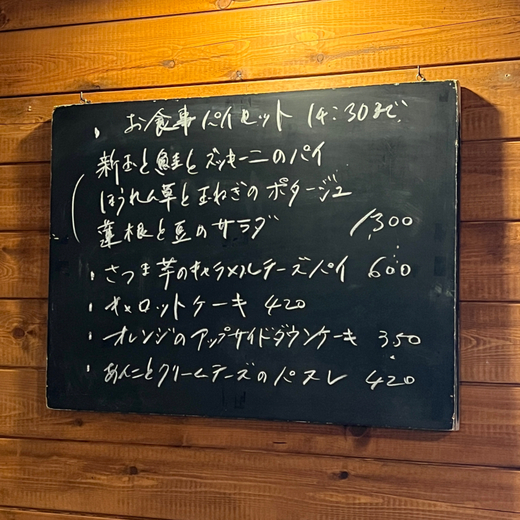 ・お食事パイセット 14:30まで
新玉と鮭とズッキーニのパイ
ほうれん草と玉ねぎのポタージュ
蓮根と豆のサラダ 1,300
・さつま芋のキャラメルチーズパイ 600
・キャロットケーキ 420
・オレンジのアップサイドダウンケーキ 350
・あんことクリームチーズの 420